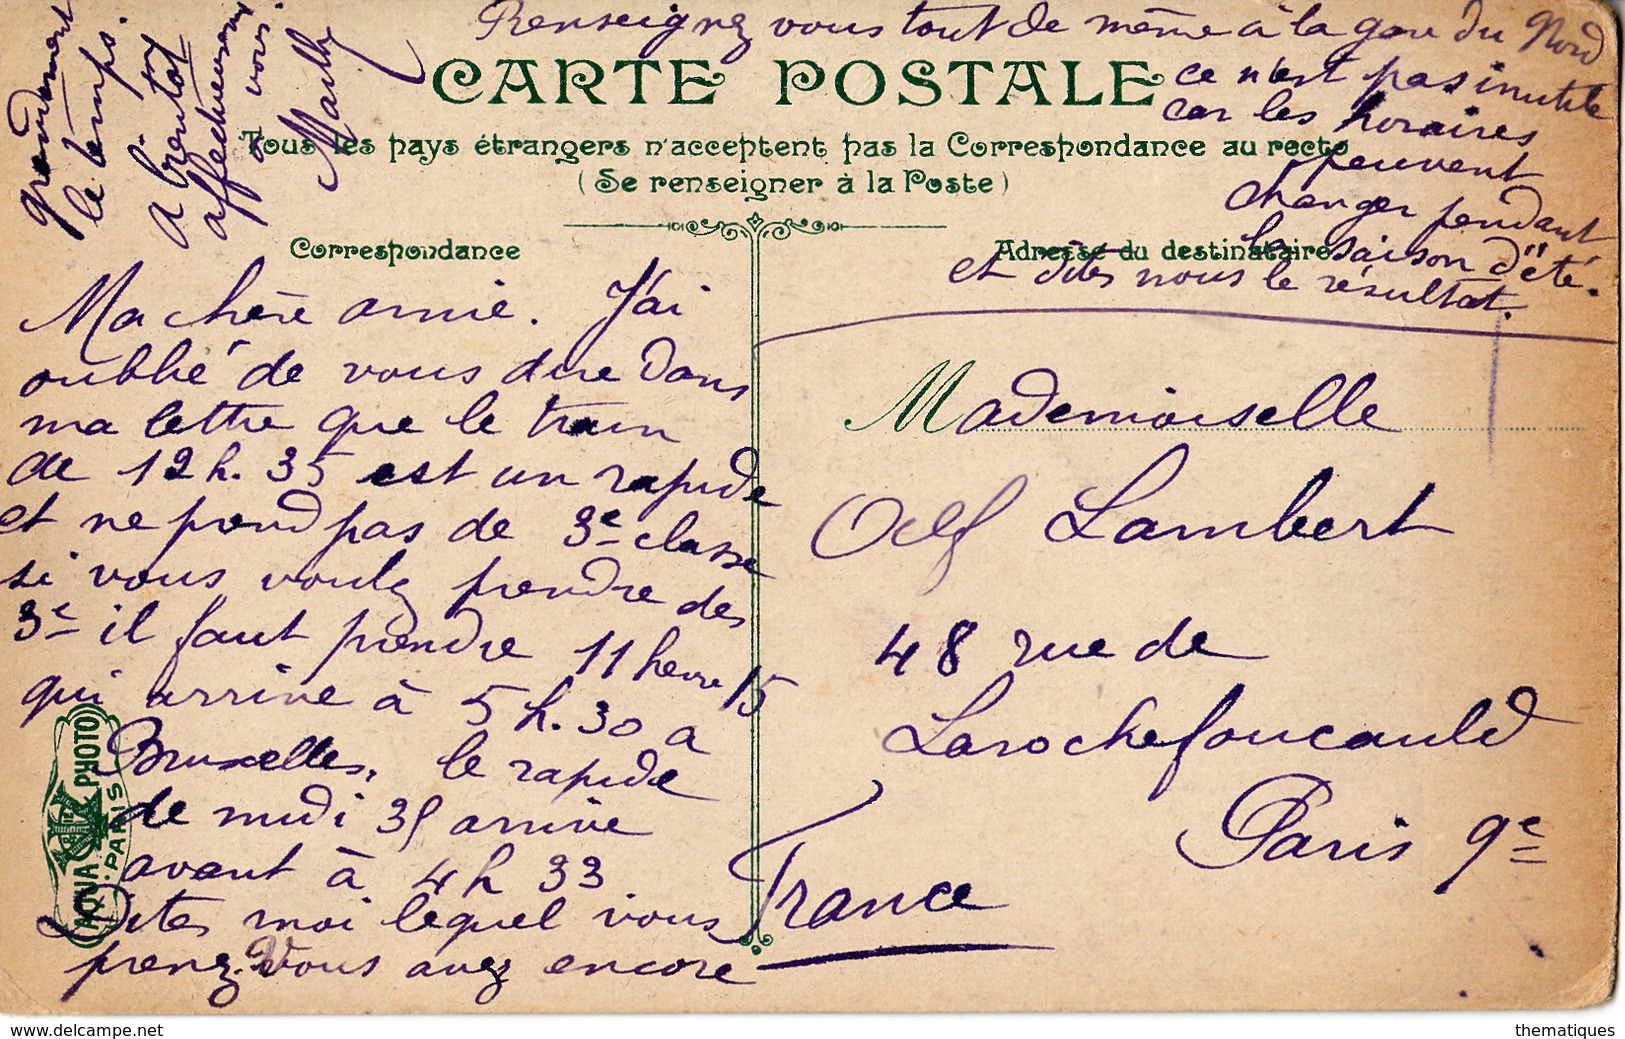 Renseignez vous tout de même à la gare du Nord
ce n'est pas inutile
car les horaires
peuvent
changer pendant
la saison d'été.
et dites nous le résultat.
CARTE POSTALE
Tous les pays étrangers n'acceptent pas la Correspondance au recto
(Se renseigner à la Poste)
Correspondance
Adresse du destinataire
Ma chère amie. J'ai
oublié de vous dire dans
ma lettre que le train
de 12 h. 35 est un rapide
et ne prend pas de 3e classe
si vous voulez prendre des
3e il faut prendre 11 heure 15
qui arrive à 5 h. 30 a
Bruxelles, le rapide
de midi 35 arrive
avant à 4 h 33.
Dites moi lequel vous
prenez. Vous avez encore
grandement
le temps.
A bientot
affectueusement
a vous.
Mademoiselle
Lambert
48 rue de
Larochefoucauld
Paris 9e
France
AQUA PHOTO
PARIS
www.delcampe.net
thematiques